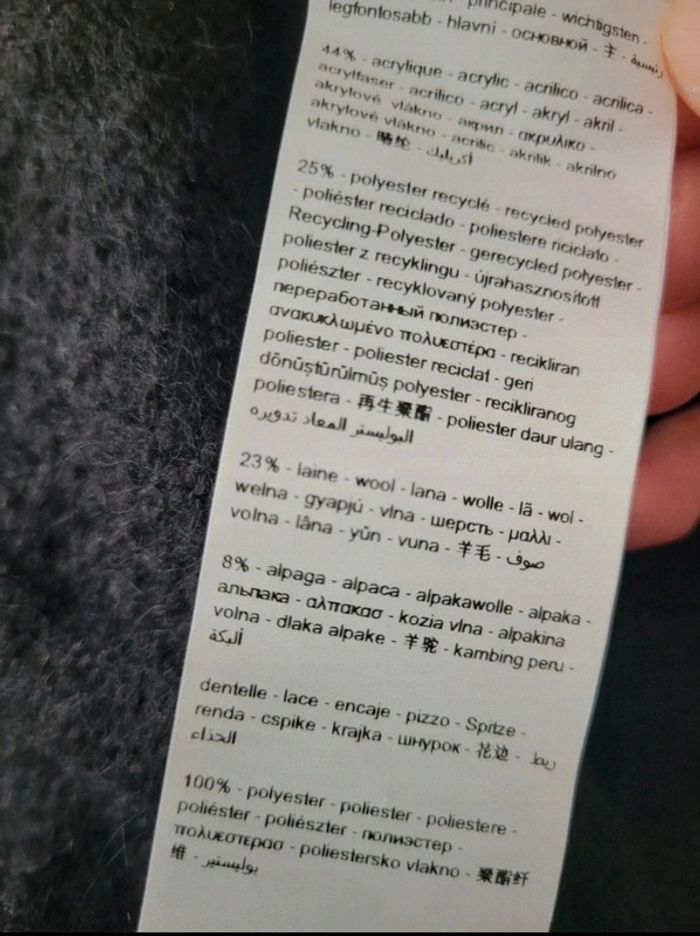 principale - wichtigsten -
legfontosabb - hlavní - основной - 主 - رئيسية
44% - acrylique - acrylic - acrilico - acrilica -
acrylfaser - acrílico - acryl - akryl - akril -
akrylové vlákno - акрил - ακρυλικο -
akrylové vlákno - acrilic - akrilik - akrilno
vlakno - 腈纶 - أكريليك
25% - polyester recyclé - recycled polyester
- poliéster reciclado - poliestere riciclato -
Recycling-Polyester - gerecycled polyester -
poliester z recyklingu - újrahasznosított
poliészter - recyklovaný polyester -
переработанный полиэстер -
ανακυκλωμένο πολυεστέρα - recikliran
poliester - poliester reciclat - geri
dönüştürülmüş polyester - recikliranog
poliestera - 再生聚酯 - poliester daur ulang -
البوليستر المعاد تدويره
23% - laine - wool - lana - wolle - lã - wol -
welna - gyapjú - vlna - шерсть - μαλλι -
volna - lâna - yün - vuna - 羊毛 - صوف
8% - alpaga - alpaca - alpakawolle - alpaka -
альпака - αλπακασ - kozia vlna - alpakina
volna - dlaka alpake - 羊驼 - kambing peru -
ألبكة
dentelle - lace - encaje - pizzo - Spitze -
renda - cspike - krajka - шнурок - 花边 - ربط
الحذاء
100% - polyester - poliester - poliestere -
poliéster - poliészter - полиэстер -
πολυεστερασ - poliestersko vlakno - 聚酯纤
维 - بوليستير